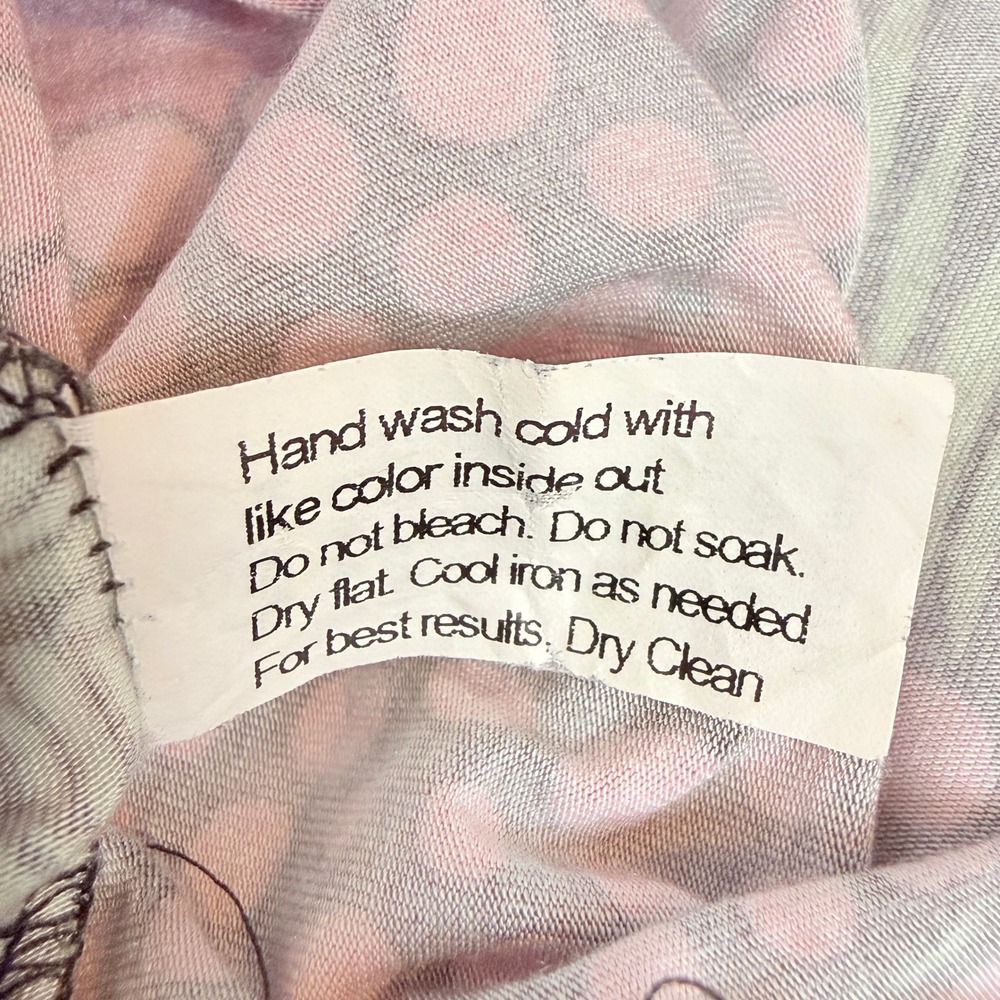 Hand wash cold with
like color inside out
Do not bleach. Do not soak.
Dry flat. Cool iron as needed
For best results. Dry Clean